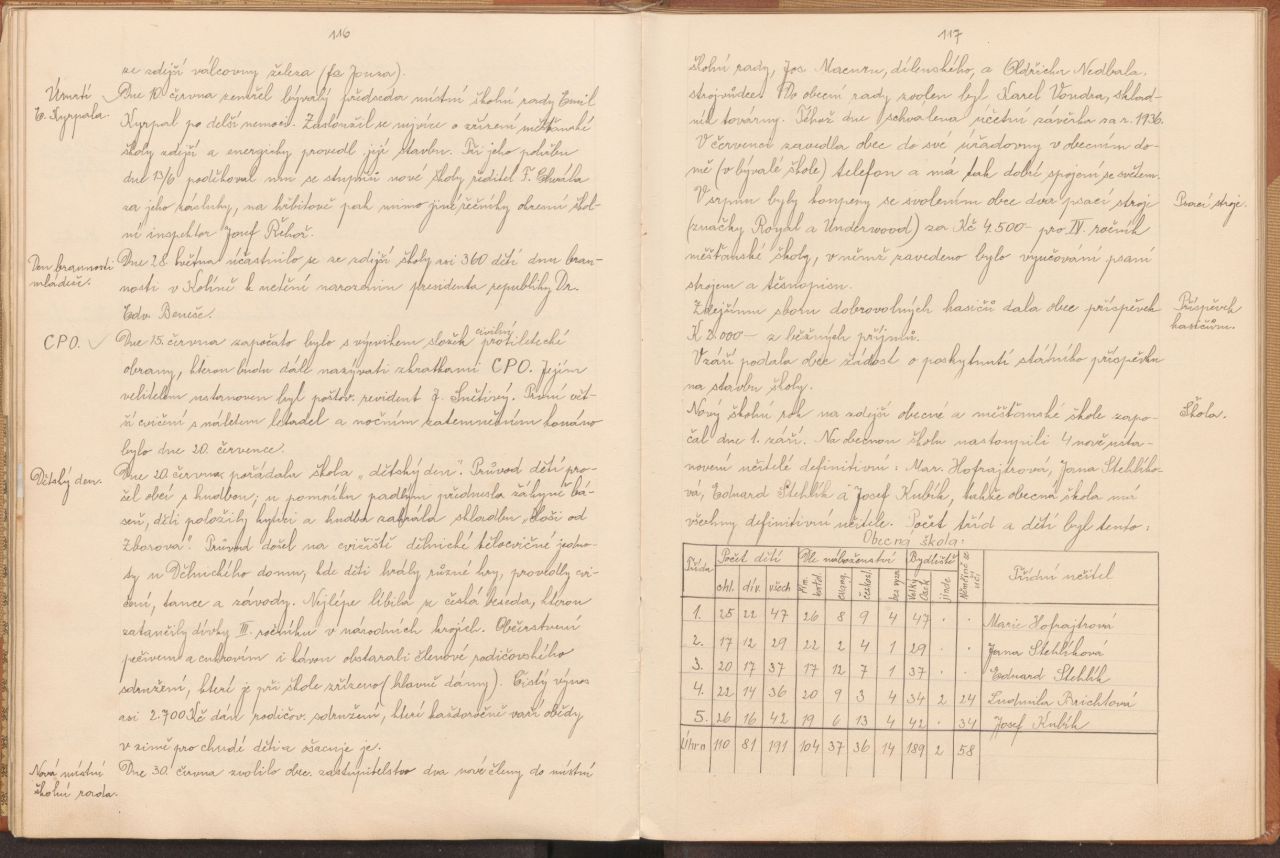 116
ze zdejší válcovny železa (fa Jouza).
Úmrtí
E. Kyrpala.
Dne 10. června zemřel bývalý předseda místní školní rady Emil
Kyrpal po delší nemoci. Zasloužil se nejvíce o zřízení měšťanské
školy zdejší a energicky provedl její stavbu. Při jeho pohřbu
dne 13/6 poděkoval mu se stupňů nové školy ředitel F. Chvála
za jeho zásluhy, na hřbitově pak mimo jiné řečníky okresní škol-
ní inspektor Josef Řehoř.
Den brannosti
mládeže.
Dne 28. května účastnilo se ze zdejší školy asi 360 dětí dnu bran-
nosti v Kolíně k uctění narozenin presidenta republiky Dr.
Edv. Beneše.
CPO.
Dne 15. června započato bylo s výcvikem složek civilní protiletecké
obrany, kterou budu dále nazývati zkratkami CPO. Jejím
velitelem ustanoven byl poštov. revident J. Snětivý. První vět-
ší cvičení s náletem letadel a nočním zatemnětním konáno
bylo dne 20. července.
Dětský den.
Dne 20. června pořádala škola „dětský den". Průvod dětí pro-
šel obcí s hudbou; u pomníku padlým přednesla žákyně bá-
seň, děti položily kytici a hudba zahrála skladbu „Hoši od
Zborova". Průvod došel na cvičiště dělnické tělocvičné jedno-
ty u Dělnického domu, kde děti hrály různé hry, provedly cvi-
čení, tance a závody. Nejlépe líbila se česká beseda, kterou
zatančily dívky III. ročníku v národních krojích. Občerstvení
pečivem a cukrovím i kávou obstarali členové rodičovského
sdružení, které je při škole zřízeno (hlavně dámy). Čistý výnos
asi 2.700 Kč dán rodičov. sdružení, které každoročně vaří obědy
v zimě pro chudé děti a ošacuje je.
Nová místní
školní rada.
Dne 30. června zvolilo obec. zastupitelstvo dva nové členy do místní
117
školní rady, Jos. Macuru, dílenského, a Oldřicha Nedbala,
strojvůdce. Do obecní rady zvolen byl Karel Vondra, sklad-
ník továrny. Téhož dne schválena účetní závěrka za r. 1936.
V červenci zavedla obec do své úřadovny v obecním do-
mě (v bývalé škole) telefon a má tak dobré spojení se světem.
Psací stroje.
V srpnu byly koupeny se svolením obce dva psací stroje
(značky Royal a Underwood) za Kč 4.500 - pro IV. ročník
měšťanské školy, v němž zavedeno bylo vyučování psaní
strojem a těsnopisu.
Příspěvek
hasičům.
Zdejšímu sboru dobrovolných hasičů dala obec příspěvek
K 2.000 - z běžných příjmů.
V září podala obec žádost o poskytnutí státního příspěvku
na stavbu školy.
Škola.
Nový školní rok na zdejší obecné a měšťanské škole zapo-
čal dne 1. září. Na obecnou školu nastoupili 4 nově usta-
novení učitelé definitivní: Mar. Hofrajtrová, Jana Stehlíko-
vá, Eduard Stehlík a Josef Kubík, takže obecná škola má
všechny definitivní učitele. Počet tříd a dětí byl tento:
Obecná škola:
Třída Počet dětí Dle náboženství Bydliště Třídní učitel
chl. dív. všech Řím. katol. evang. českosl. bez vyzn. Velký Osek jinde
1. 25 22 47 26 8 9 4 47 . . Marie Hofrajtrová
2. 17 12 29 22 2 4 1 29 . . Jana Stehlíková
3. 20 17 37 17 12 7 1 37 . . Eduard Stehlík
4. 22 14 36 20 9 3 4 34 2 24 Ludmila Brichtová
5. 26 16 42 19 6 13 4 42 . 34 Josef Kubík
Úhrn 110 81 191 104 37 36 14 189 2 58